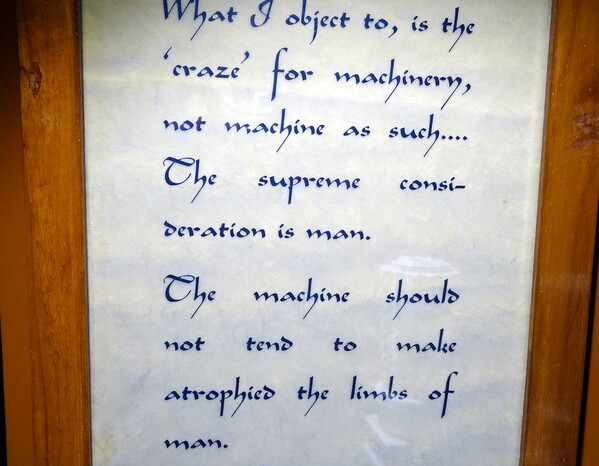 What I object to, is the
'craze' for machinery,
not machine as such....
The supreme consi-
deration is man.
The machine should
not tend to make
atrophied the limbs of
man.